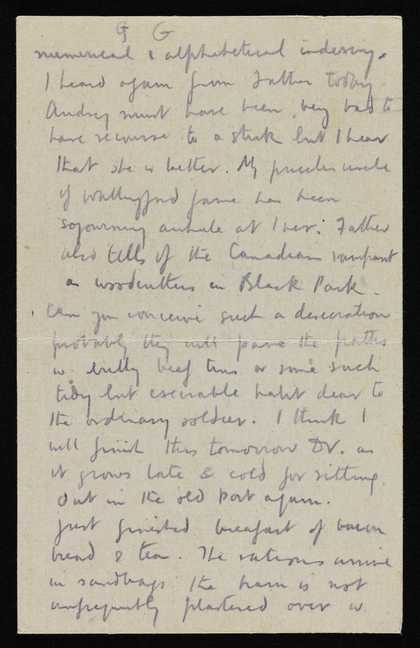 G G
numerical & alphabetical indexing.
I heard again from Father today
Audrey must have been very bad to
have recourse to a stick but I hear
that she is better. My priceless uncle
of Wallingford fame has been
sojourning awhile at Iver: Father
also tells of the Canadians rampant
as woodcutters in Black Park.
Can you conceive such a desecration
probably they will pave the paths
w. bully beef tins or some such
tidy but execrable habit dear to
the ordinary soldier. I think I
will finish this tomorrow DV. as
it grows late & cold for sitting
out in the old port again.
Just finished breakfast of bacon
bread & tea. The rations arrive
in sandbags the ham is not
unfrequently plastered over w.